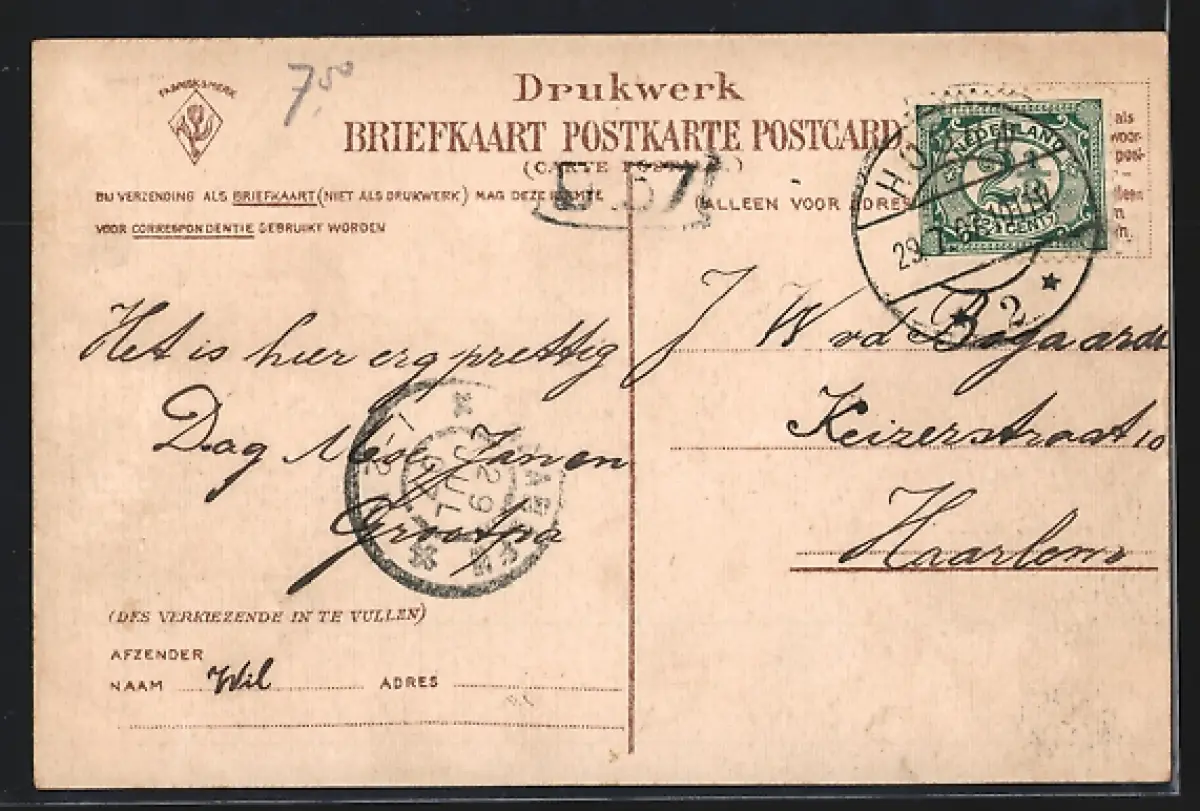 FABRIEKSMERK
7,50
Drukwerk
BRIEFKAART POSTKARTE POSTCARD
(CARTE POSTALE)
BIJ VERZENDING ALS BRIEFKAART (NIET ALS DRUKWERK) MAG DEZE RUIMTE
VOOR CORRESPONDENTIE GEBRUIKT WORDEN
(ALLEEN VOOR ADRES
NEDERLAND
2½
CENT
29.7.
2
als
voor-
post-
lleen
Het is hier erg prettig
Dag Jan en
Grootpa
29 JUL
J W vd Bogaarde
Keizerstraat 10
Haarlem
(DES VERKIEZENDE IN TE VULLEN)
AFZENDER
NAAM Wil ADRES